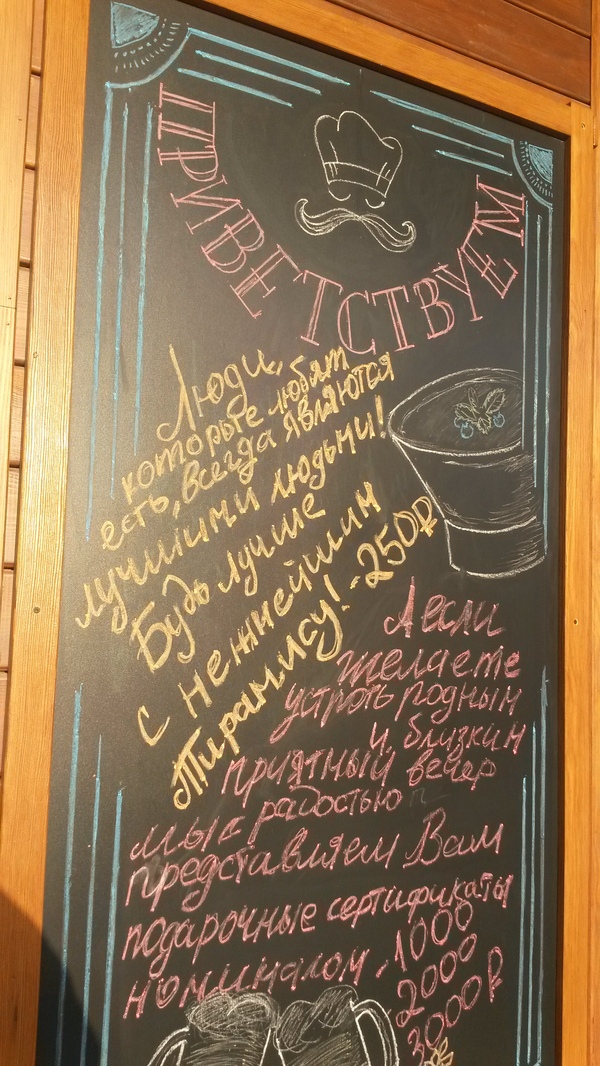 ПРИВЕТСТВУЕМ
Люди,
которые любят
есть, всегда являются
лучшими людьми!
Будь лучше
с нежнейшим
Тирамису! - 250₽
А если
желаете
устроть родным
и близким
приятный вечер
мы с радостью
представляем Вам
подарочные сертификаты
номиналом, 1000
2000
3000₽